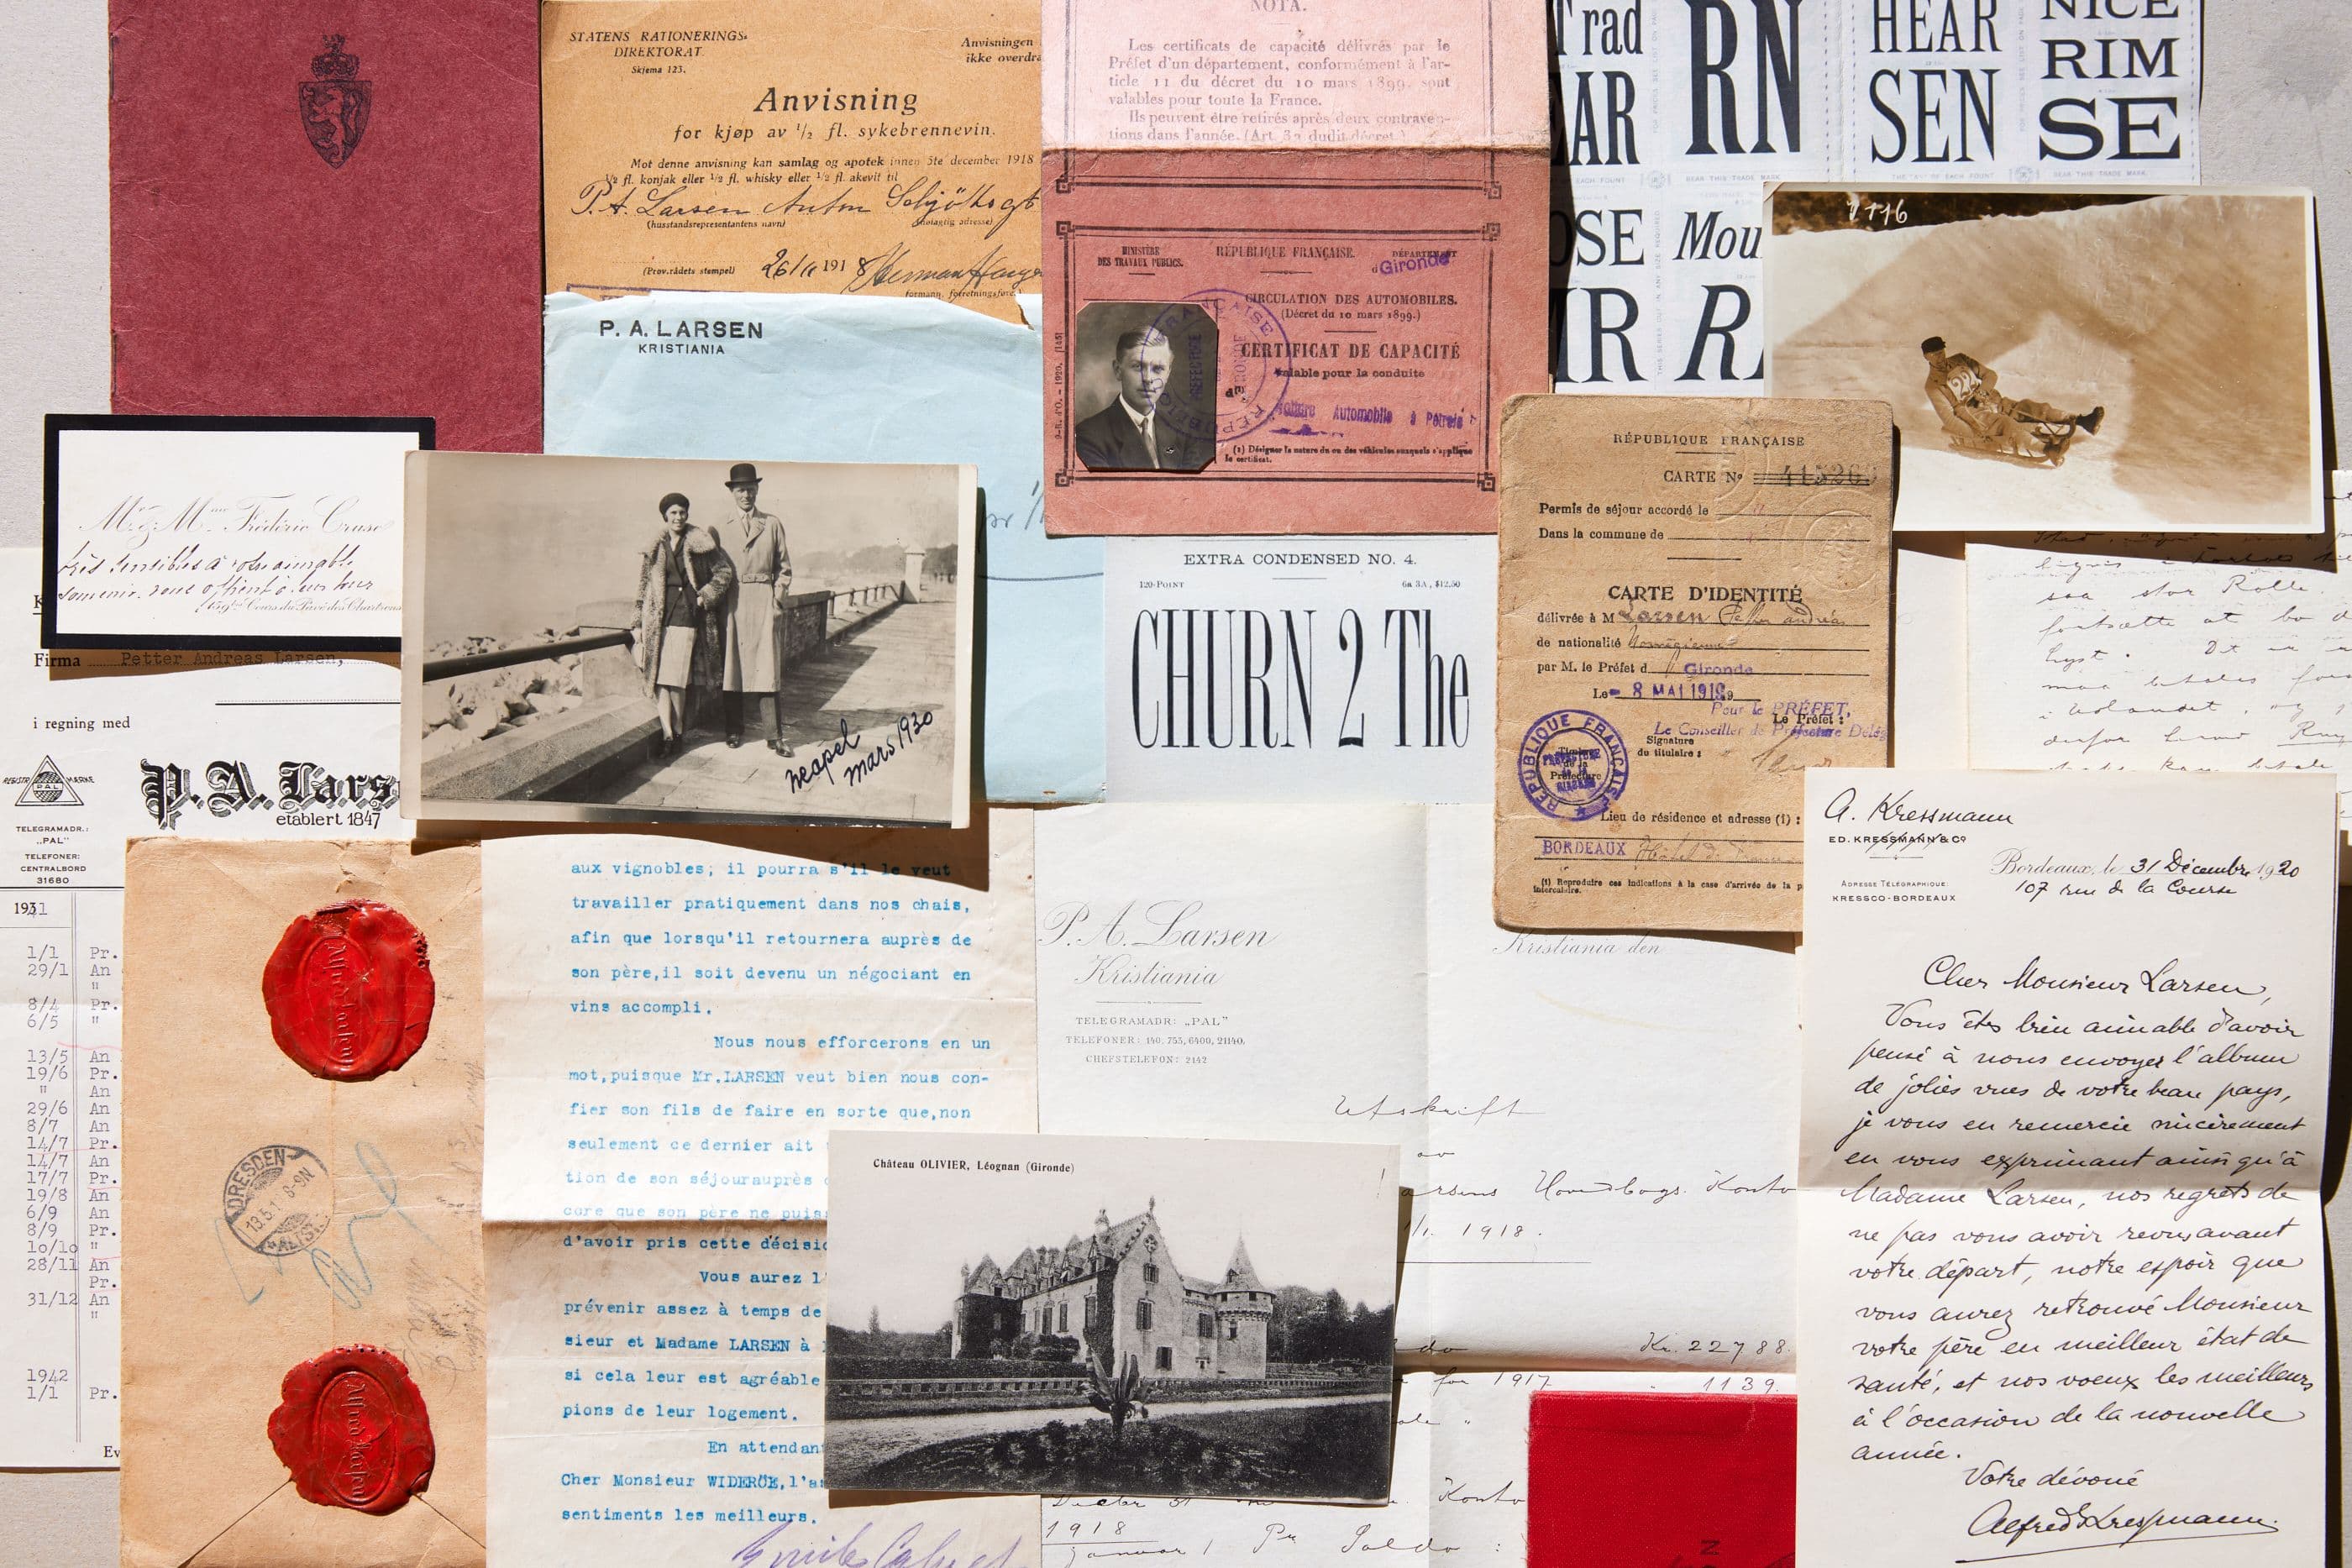 STATENS RATIONERINGS-
DIREKTORAT.
Skjema 123.
Anvisningen
ikke overdra
Anvisning
for kjøp av ½ fl. sykebrennevin.
Mot denne anvisning kan samlag og apotek innen 5te december 1918
½ fl. konjak eller ½ fl. whisky eller ½ fl. akevit til
P. A. Larsen Anton
(husstandsrepresentantens navn)
(nøiagtig adresse)
(Prov.rådets stempel)
26/11 1918 Herman
formann, forretningsfører
NOTA.
Les certificats de capacité délivrés par le
Préfet d'un département, conformément à l'ar-
ticle 11 du décret du 10 mars 1899, sont
valables pour toute la France.
Ils peuvent être retirés après deux contraven-
tions dans l'année. (Art. 32 dudit décret.)
MINISTÈRE
DES TRAVAUX PUBLICS.
RÉPUBLIQUE FRANÇAISE.
DÉPARTEMENT
d Gironde
CIRCULATION DES AUTOMOBILES.
(Décret du 10 mars 1899.)
CERTIFICAT DE CAPACITÉ
valable pour la conduite
de
Voiture Automobile à Pétrole
(1) Désigner la nature du ou des véhicules auxquels s'applique
le certificat.
Trad
RN
HEAR
SEN
NICE
RIM
SE
AR
OSE
Mou
IR
R
BEAR THIS TRADE MARK
1116
22
P. A. LARSEN
KRISTIANIA
Mr & Mme Frédéric Cruse
très sensibles à votre aimable
souvenir, vous offrent
159 bis Cours du Pavé des Chartrons
neapel
mars 1930
EXTRA CONDENSED NO. 4.
120-POINT
6a 3A, $12.50
CHURN 2 The
RÉPUBLIQUE FRANÇAISE
CARTE No 415260
Permis de séjour accordé le
Dans la commune de
CARTE D'IDENTITÉ
délivrée à M Larsen Petter Andréas
de nationalité Norvégienne
par M. le Préfet d Gironde
Le - 8 MAI 1919
Pour le PRÉFET,
Le Préfet :
Le Conseiller de Préfecture Délég
Signature
du titulaire :
RÉPUBLIQUE FRANÇAISE
Timbre
de la
Préfecture
Lieu de résidence et adresse (1) :
BORDEAUX Hôtel de France
(1) Reproduire ces indications à la case d'arrivée de la p
intercalaire.
saa stor Rolle.
fortsætte at bo
Firma Petter Andreas Larsen,
i regning med
REGISTR. MÆRKE
PAL
P. A. Lars
etablert 1847
TELEGRAMADR.:
„PAL"
TELEFONER:
CENTRALBORD
31680
1931
1/1 Pr.
29/1 An
"
8/4 Pr.
6/5 "
13/5 An
19/6 Pr.
" An
29/6 An
8/7 An
14/7 Pr.
14/7 An
17/7 Pr.
19/8 An
6/9 An
8/9 Pr.
10/10 "
28/11 An
Pr.
31/12 An
"
1942
1/1 Pr.
Ev
Alfred Larsen
DRESDEN
ALTST.
Alfred Larsen
aux vignobles; il pourra s'il le veut
travailler pratiquement dans nos chais,
afin que lorsqu'il retournera auprès de
son père,il soit devenu un négociant en
vins accompli.
Nous nous efforcerons en un
mot,puisque Mr.LARSEN veut bien nous con-
fier son fils de faire en sorte que,non
seulement ce dernier ait
tion de son séjourauprès
core que son père ne puis
d'avoir pris cette décisio
Vous aurez l'
prévenir assez à temps de
sieur et Madame LARSEN à
si cela leur est agréable
pions de leur logement.
En attendan
Cher Monsieur WIDERÖE,l'a
sentiments les meilleurs.
P. A. Larsen
Kristiania
TELEGRAMADR: „PAL"
TELEFONER: 140, 755, 6400, 21140.
CHEFSTELEFON: 2142
Kristiania den
Utskrift
av
arsens Hovedbogs Konto
1/1. 1918.
Kr. 22788.
for 1917 " 1139.
Konto
1918
Januar 1 Pr Saldo :
Château OLIVIER, Léognan (Gironde)
A. Kressmann
ED. KRESSMANN & Co
ADRESSE TÉLÉGRAPHIQUE:
KRESSCO-BORDEAUX
Bordeaux, le 31 Décembre 1920
107 rue de la Course
Cher Monsieur Larsen,
Vous êtes bien aimable d'avoir
pensé à nous envoyer l'album
de jolies vues de votre beau pays,
je vous en remercie sincèrement
en vous exprimant ainsi qu'à
Madame Larsen, nos regrets de
ne pas vous avoir revus avant
votre départ, notre espoir que
vous aurez retrouvé Monsieur
votre père en meilleur état de
santé, et nos voeux les meilleurs
à l'occasion de la nouvelle
année.
Votre dévoué
Alfred Kressmann